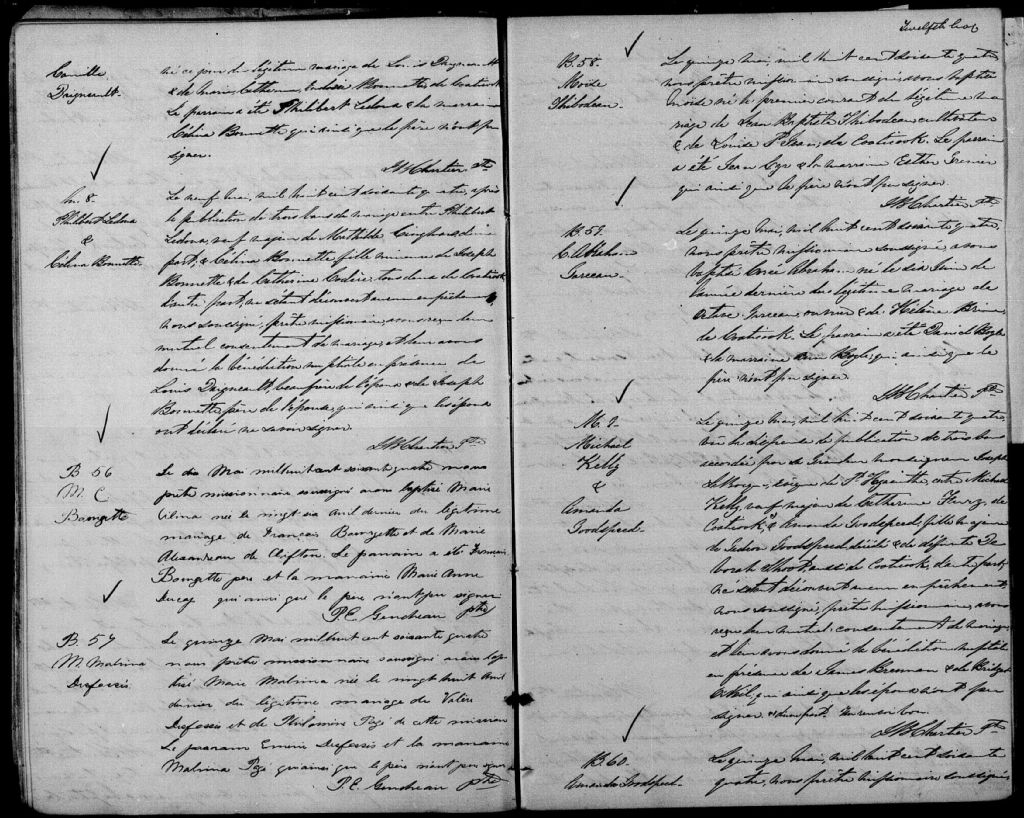 Camille
Daigneault.
né ce jour du légitime mariage de Louis Daigneault
& de Catherine Bonnette de Coaticook
Le parrain a été Philibert Ledoux & la marraine
Célina Bonnette qui ainsi que le père n'ont pu
signer.
J.B. Chartier Ptre
M. 8.
Philibert Ledoux
&
Célina Bonnette
Le neuf Mai, mil huit cent soixante quatre, après
la publication de trois bans de mariage entre Philibert
Ledoux, veuf majeur de Mathilde d'une
part, & Célina Bonnette, fille mineure de Joseph
Bonnette & de Catherine tous deux de Coaticook
d'autre part, ne s'étant découvert aucun empêchement
nous soussigné, prêtre missionnaire, avons reçu leur
mutuel consentement de mariage, et leur avons
donné la bénédiction nuptiale en présence de
Louis Daigneault, beau frère de l'époux & de Joseph
Bonnette père de l'épouse, qui ainsi que les époux
ont déclaré ne savoir signer.
J.B. Chartier Ptre
B 56
M. C
Bourgette
Le dix Mai mil huit cent soixante quatre nous
prêtre missionnaire soussigné avons baptisé Marie
Célina née le vingt six Avril dernier du légitime
mariage de François Bourgette et de Marie
Alexandreau de Clifton. Le parrain a été Francois
Bourgette père et la marraine Marie Anne
qui ainsi que le père n'ont pu signer
P.E. Gendreau ptre
B. 57
M. Malvina
Desfossés
Le quinze Mai mil huit cent soixante quatre
nous prêtre missionnaire soussigné avons bap
tisé Marie Malvina née le vingt huit Avril
dernier du légitime mariage de Valère
Desfossés et de Philomène de cette mission
Le parrain Desfossés et la marraine
Malvina qui ainsi que le père n'ont pu signer
P.E. Gendreau ptre
Twelfth
B. 58.
Moïse
Thibodeau.
Le quinze Mai, mil huit cent soixante quatre,
nous prêtre missionnaire soussigné, avons baptisé
Moïse né le premier courant du légitime ma
riage de Jean Baptiste Thibodeau cultivateur
& de Louise St Jean, de Coaticook. Le parrain
a été Jean Cyr & la marraine Esther
qui ainsi que le père n'ont pu signer.
J.B. Chartier Ptre
B. 59.
Le quinze Mai, mil huit cent soixante quatre,
nous prêtre missionnaire soussigné, avons
baptisé Abraham né le six Juin de
l'année dernière du légitime mariage de
ouvrier & de Hélène
de Coaticook. Le parrain a été Daniel Boyle
& la marraine Boyle, qui ainsi que le
père n'ont pu signer.
J.B. Chartier Ptre
M. 9.
Michael
Kelly
&
Amanda
Goodspeed.
Le quinze Mai, mil huit cent soixante quatre,
vu la dispense de publication de trois bans
accordée par sa Grandeur Monseigneur Joseph
évêque de St Hyacinthe, entre Michael
Kelly, veuf majeur de Catherine de
Coaticook & Amanda Goodspeed, fille majeure
de Goodspeed & de défunte De
borah aussi de Coaticook, d'autre part,
ne s'étant découvert aucun empêchement
nous soussigné, prêtre missionnaire, avons
reçu leur mutuel consentement de mariage
et leur avons donné la bénédiction nuptiale
en présence de James Brennan & de Bridget
qui ainsi que les époux n'ont pu
signer.
J.B. Chartier Ptre
B 60.
Amanda Goodspeed.
Le quinze Mai, mil huit cent soixante
quatre, nous prêtre missionnaire soussigné